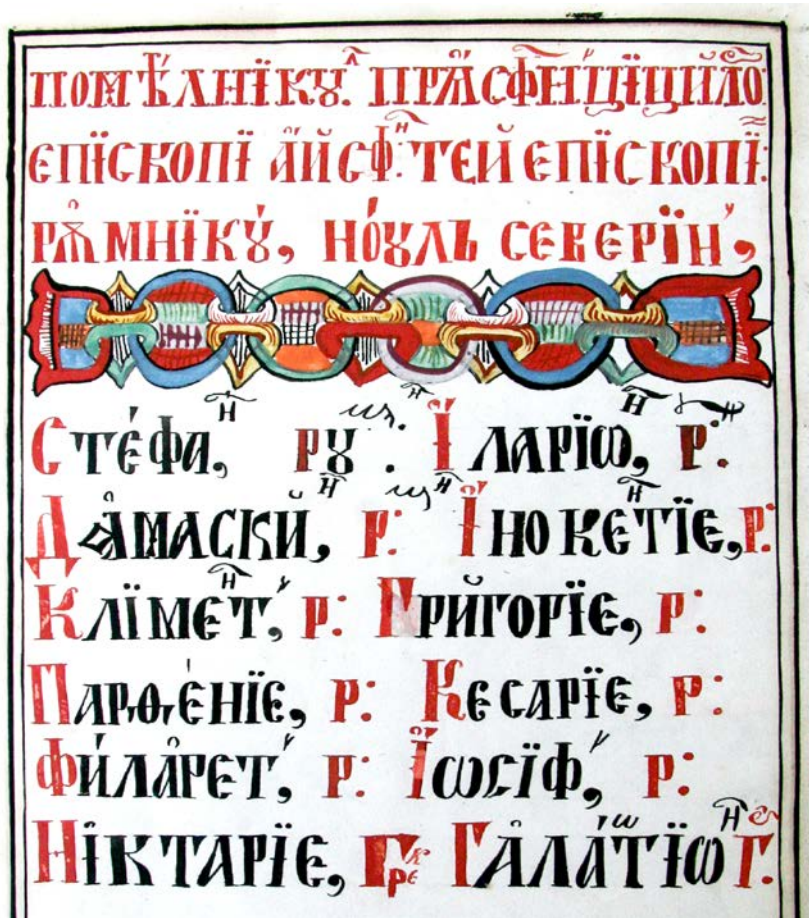 ПОМѢЛНЇКꙋ҆ᷧ: ПРѦСФНЦЇЦИЛѠ:
ЕПЇСКОПЇ АЙ СФ:ⷩ҇ТЕЙ ЕПЇСКОПЇ:
РѪМНЇКꙋ́, НО́ꙋЛЬ СЕВЕРЇН,
СТЕ́ФАⷩ҇, Рꙋ: І҆ЛАРЇѠⷩ҇, Р:
ДАМАСКИⷩ҇, Р: І҆НОКЕⷩ҇ТЇЕ, Р:
КЛЇМЕⷩ҇Т, Р: ГРИГОРЇЕ, Р:
ПАРѲЕ́НЇЕ, Р: КЕСАРЇЕ, Р:
ФИ́ЛАРЕТ, Р: І҆ѠСЇФ, Р:
НІКТАРЇЕ, ГРЕⷦ҇ ГАЛА́ТЇѠⷩ҇ Г.